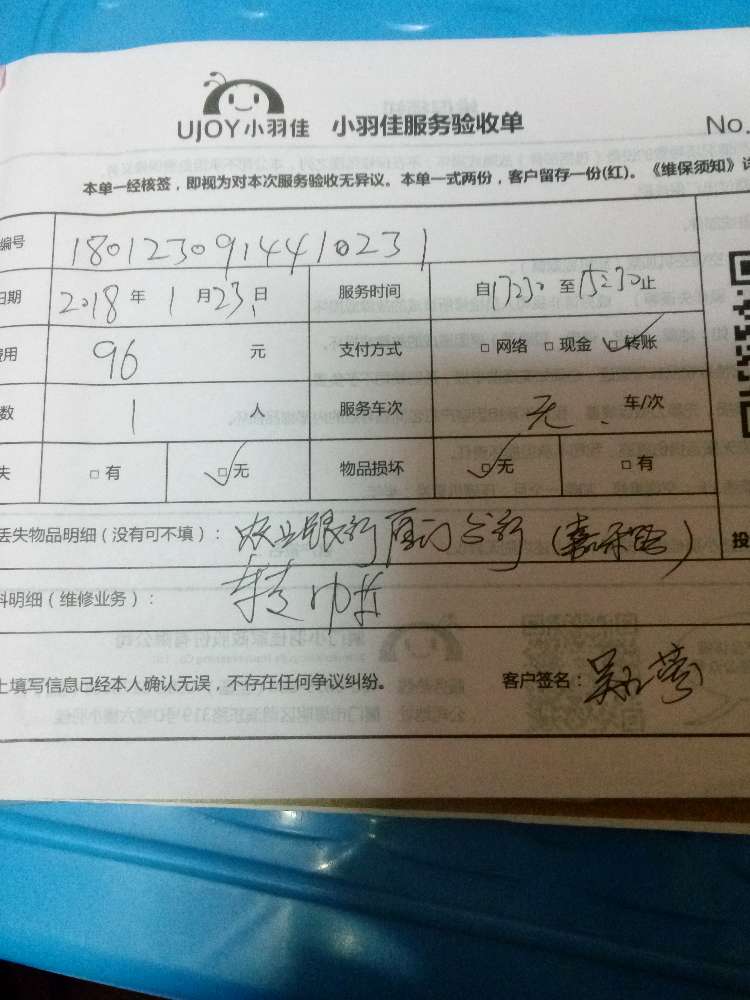 UJOY小羽佳 小羽佳服务验收单 No.
本单一经核签，即视为对本次服务验收无异议。本单一式两份，客户留存一份(红)。《维保须知》详
编号 1801230914410231
日期 2018 年 1 月 23 日 服务时间 自 13:30 至 15:30 止
费用 96 元 支付方式 □ 网络 □ 现金 ☑ 转账
数 1 人 服务车次 无 车/次
失 □ 有 ☑ 无 物品损坏 ☑ 无 □ 有
丢失物品明细（没有可不填）： 农业银行厦门分行（嘉禾路）
料明细（维修业务）： 转帐
上填写信息已经本人确认无误，不存在任何争议纠纷。 客户签名：
投